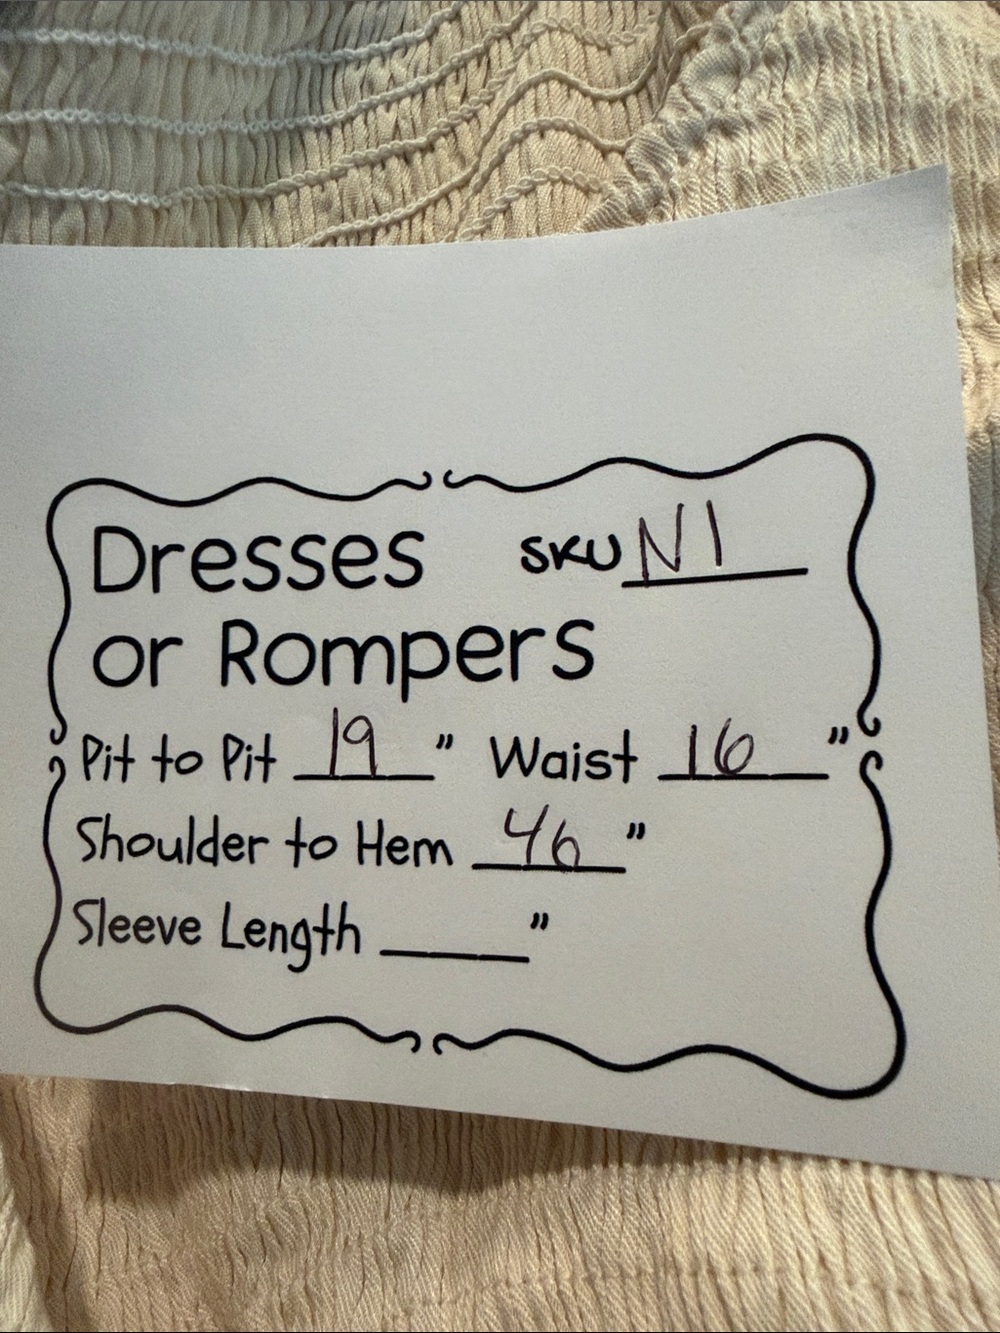 Dresses SKU N1
or Rompers
Pit to Pit 19" Waist 16"
Shoulder to Hem 46"
Sleeve Length ____"